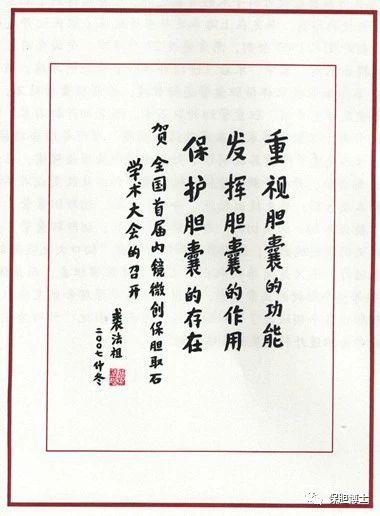 重视胆囊的功能
发挥胆囊的作用
保护胆囊的存在
贺全国首届内镜微创保胆取石
学术大会的召开
裘法祖
二〇〇七仲冬
保胆博士